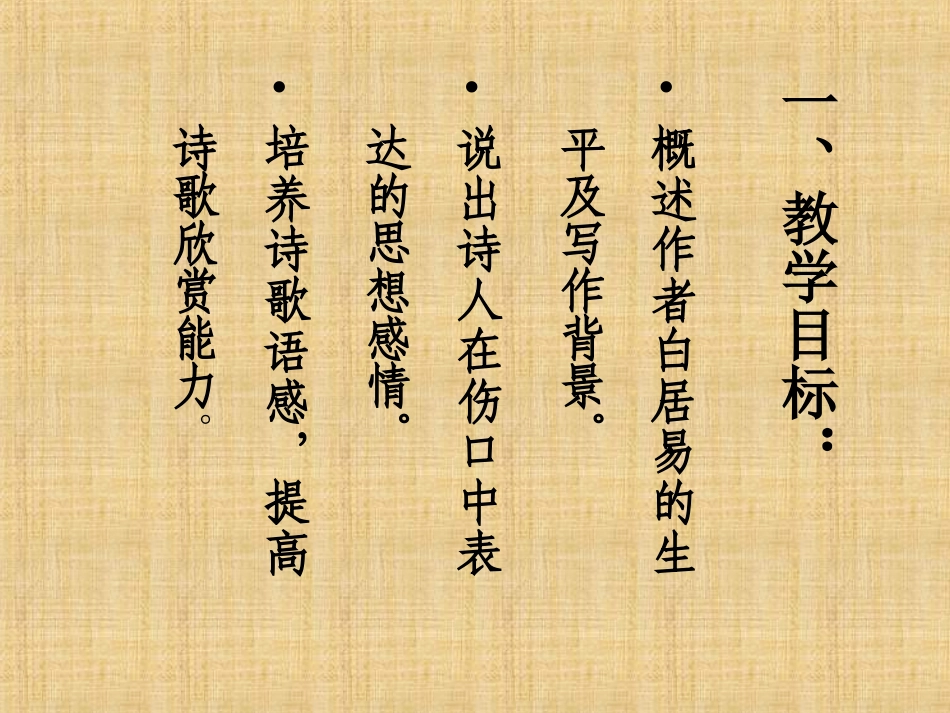 一、教学目标：
• 概述作者白居易的生
平及写作背景。
• 说出诗人在伤口中表
达的思想感情。
• 培养诗歌语感，提高
诗歌欣赏能力。